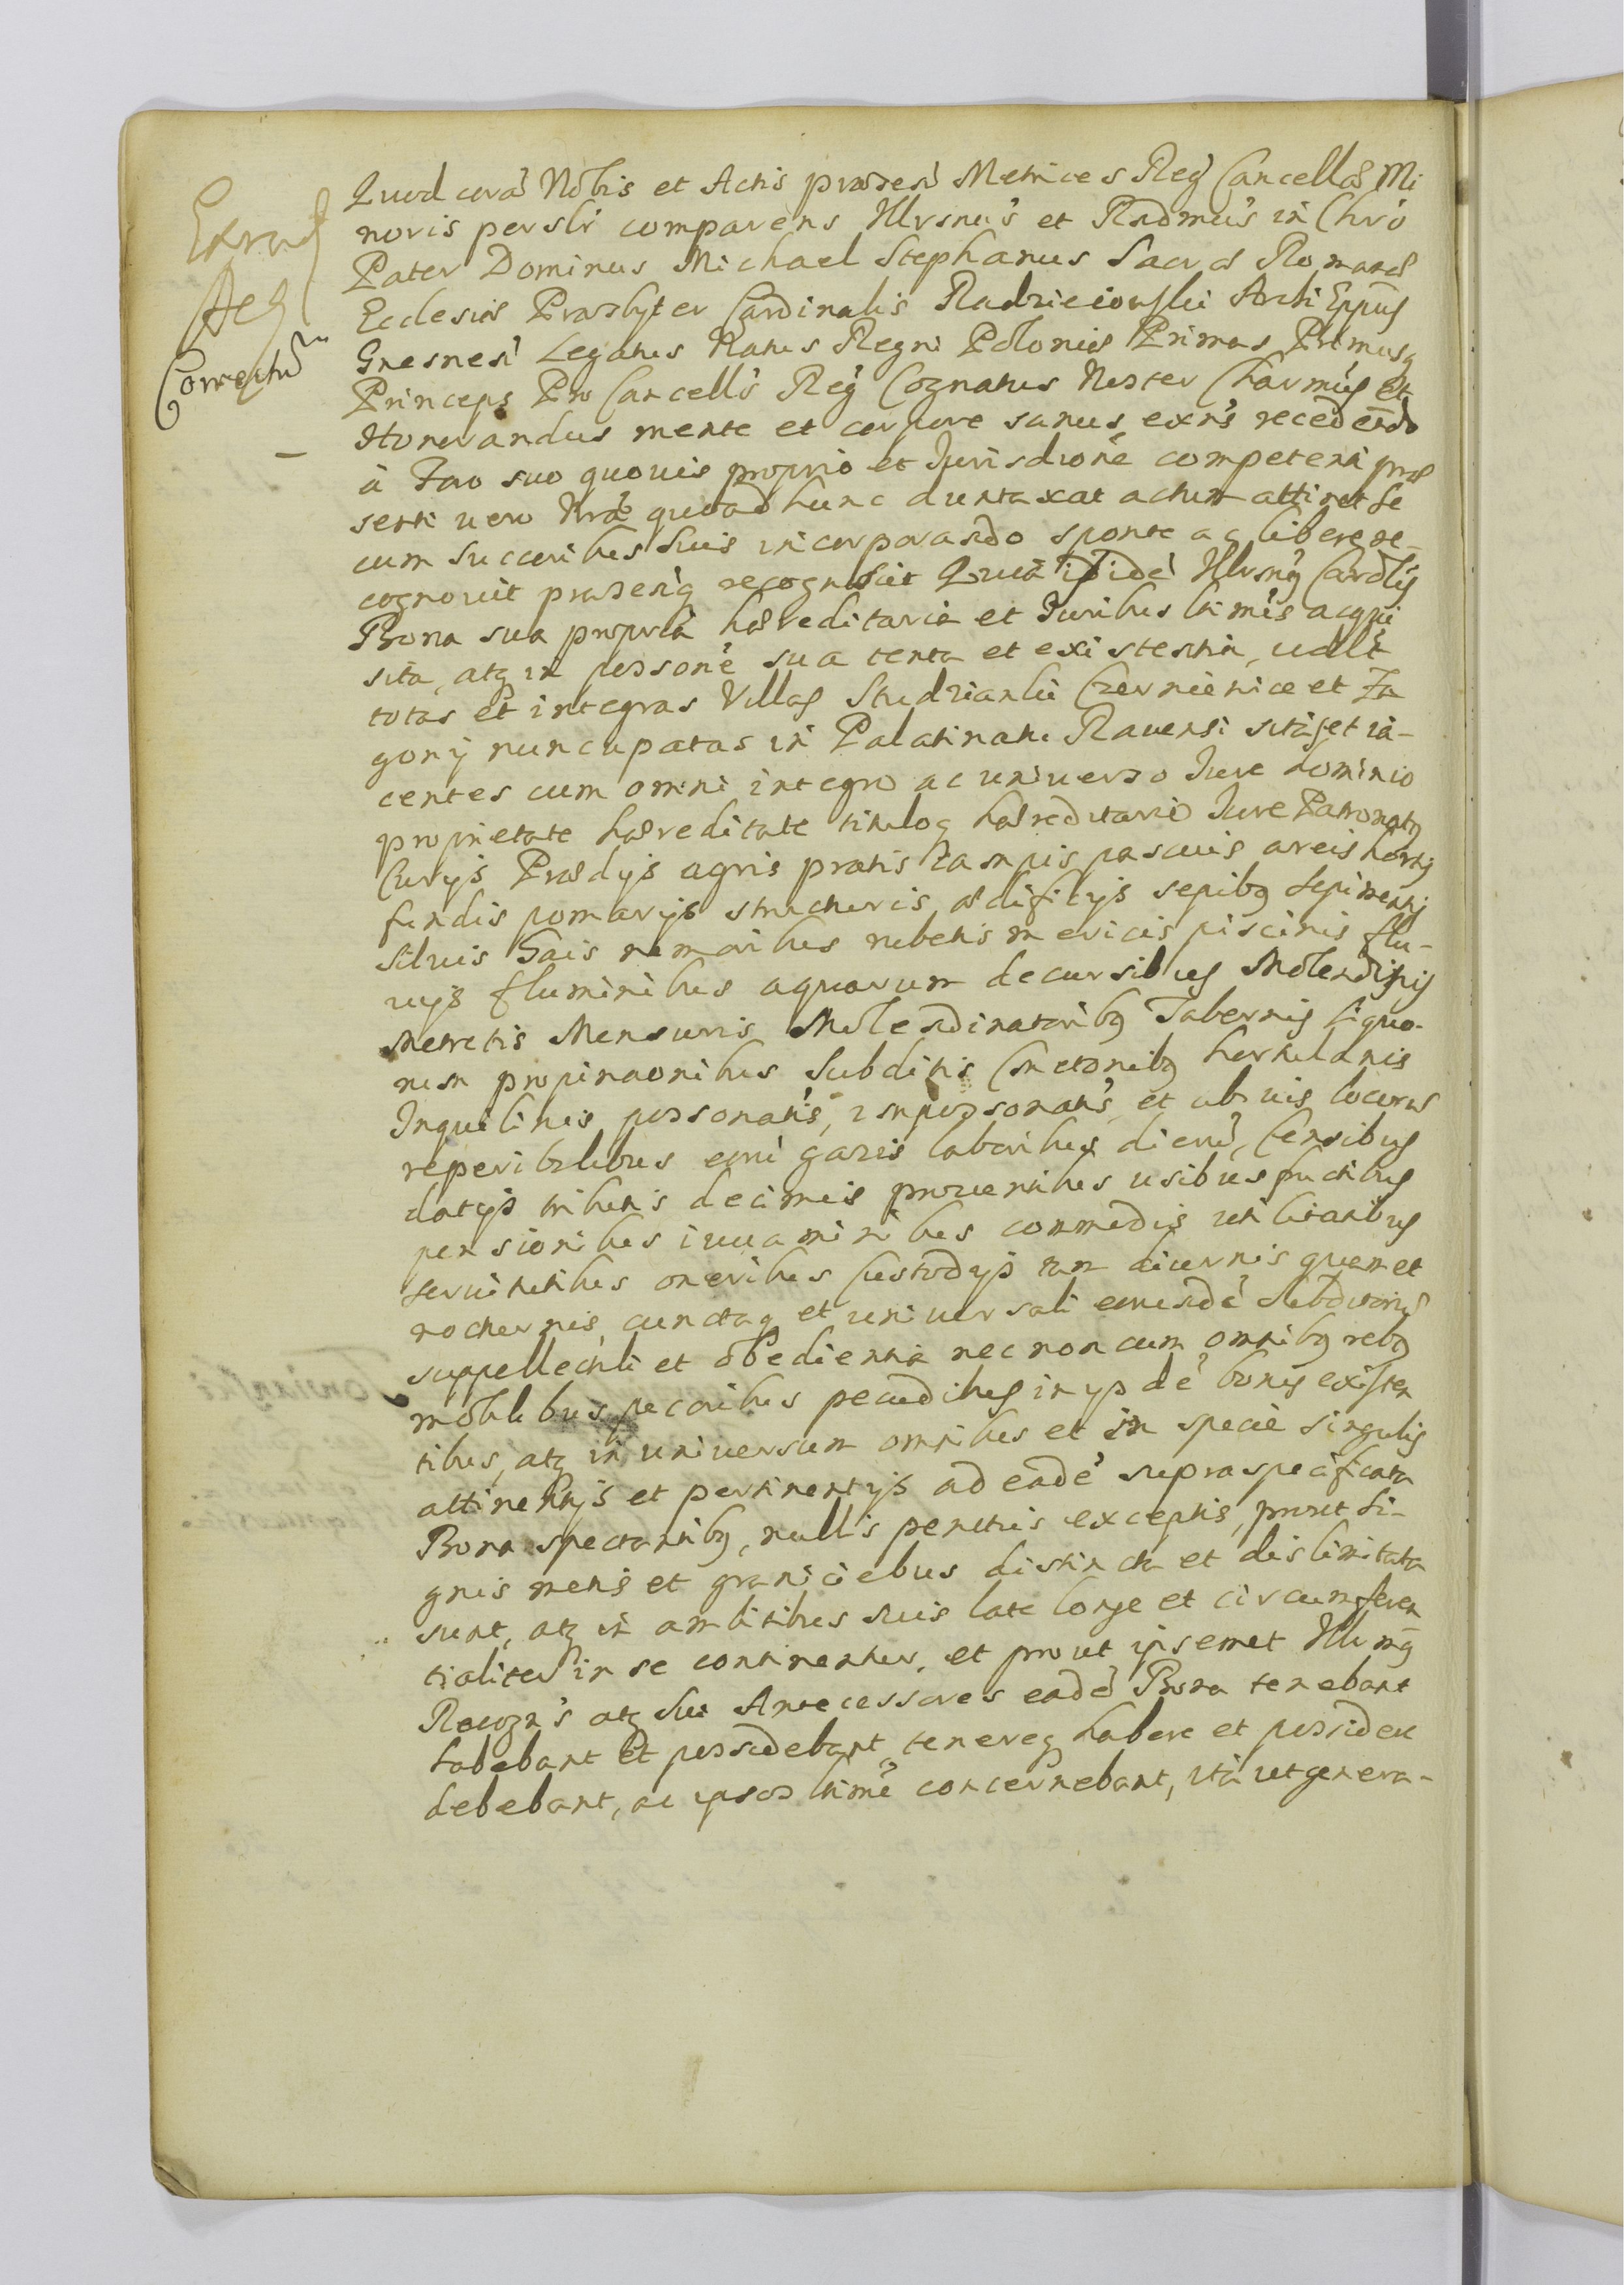 Extrad
Acq
Correctu
Quod corã Nobis et Actis præsen̓ Metrices Reg̓ Cancellæ Mi
noris persl̓r comparens Illrsmu's et Rndmu's in Chro̓
Pater Dominus Michael Stephanus Sacræ Romanæ
Ecclesiæ Præsbyter Cardinalis Radzieiowski Archi Eppus
Gnesnen̓ Legatus Natus Regni Poloniæ Primas Primusq
Princeps Pro Cancell's Reg̓ Cognatus Noster Charm̓us et
Honorandus mente et corpore sanus exn's recedendo
à Foro suo quovis proprio et Jurisdione̓ competenti præ
senti vero Nræ quoad hunc duntaxat actum attinet se
cum Succoribus suis incorporando sponte ac libere re-
cognovit præsesiq̓ recognoscit Quia ipside̓ Illrsmq Cardlis
Bona sua propria hæreditaria et Juribus ltimis acqui
sita, atq in possone̓ sua tenta et existentia, vdlt
totas et integras Villas Studzianki Czerniewice et Za
gory nuncupatas in Palatinatu Ravensi sitas et ia-
centes cum omni integro ac universo Jure dominio
proprietate hæreditate tituloq hæreditario Jure Patronatq
Curijs Prædijs agris pratis campis pascuis areis hortis
fundis pomarijs structuris ædificijs sepibq sepimentis
silvis Gais nemoribus rubetis mericis piscinis flu-
vijs fluminibus aquarum decursibus Molendinis
Metretis Mensuris Molendinatoribq Tabernis liquo-
rum propinaonibus Subditis Cmetonibq hortulanis
Inquilinis possonatis, impossonatis, et ubivis locorum
reperibilibus eoru̓ gazis laboribus dieru̓, Censibus
datijs tributis decimis proventibus usibus fructibus
pensionibus iuvaminibus commodis utilitatibus
servitutibus oneribus Custodijs tam diurnis quam et
nocturnis, cunctaq et universali eorundē subditorum
suppellectili et obedientia nec non cum omnibq rebq
mobilibus pecoribus pecudibus in ijsdē bonis existen
tibus, atq in universum omnibus et in specie singulis
attinentijs et pertinentijs ad eadē supraspecificata
Bona spectantibq, nullis penitus exceptis, prout si-
gnis metis et graniciebus distincta et dislimitata
sunt, atq in ambitibus suis late longe et circumferen
tialiter in se continentur, et prout ipsemet Illrmq
Recogn's atq sui Antecessores eadē Bona tenebant
habebant et possidebant, tenereq habere et possidere
debebant, ac ipsos ltime̓ concernebant, ita ut genera-